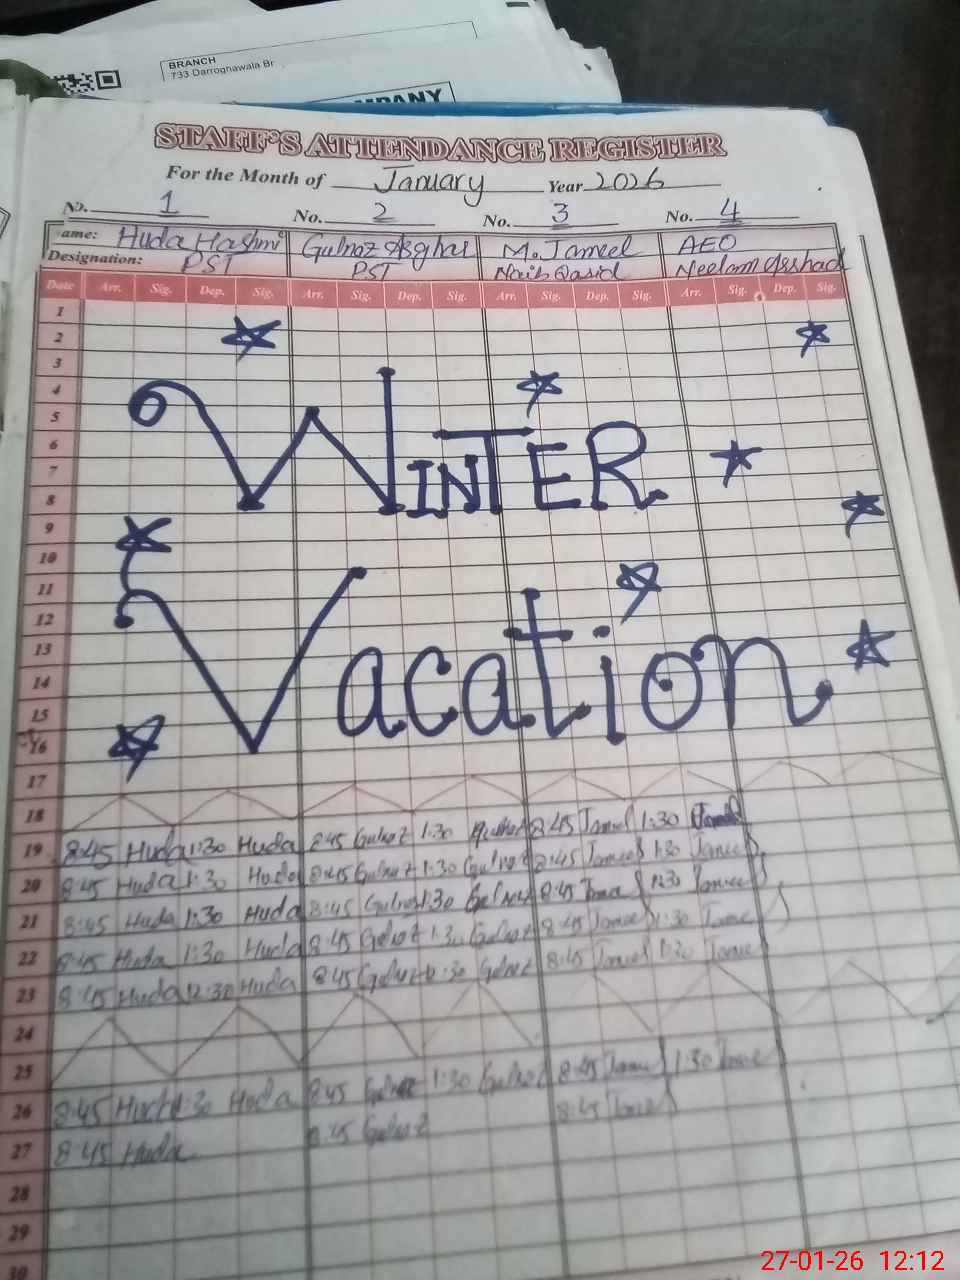 BRANCH
733 Darrognawala Br
MPANY
STAFF'S ATTENDANCE REGISTER
For the Month of January Year 2026
No. 1 No. 2 No. 3 No. 4
ame: Huda Hashmi Gulnaz Asghar M. Jameel AEO
Designation: PST PST Naib Qasid Neelam Arshad
Date Arr. Sig. Dep. Sig. Arr. Sig. Dep. Sig. Arr. Sig. Dep. Sig. Arr. Sig. Dep. Sig.
1
2
3
4
5
6
7
8
WINTER
9
10
11
12
13
14
15
16
Vacation
17
18
19 8:45 Huda 1:30 Huda 8:45 Gulnaz 1:30 8:45 Jameel 1:30 Jameel
20 8:45 Huda 1:30 Huda 8:45 Gulnaz 1:30 Gulnaz 8:45 Jameel 1:30 Jameel
21 8:45 Huda 1:30 Huda 8:45 Gulnaz 1:30 Gulnaz 8:45 Jameel 1:30 Jameel
22 8:45 Huda 1:30 Huda 8:45 Gulnaz 1:30 Gulnaz 8:45 Jameel 1:30 Jameel
23 8:45 Huda 12:30 Huda 8:45 Gulnaz 12:30 Gulnaz 8:45 Jameel Jameel
24
25
26 8:45 Huda 1:30 Huda 8:45 Gulnaz 1:30 Gulnaz 8:45 Jameel 1:30 Jameel
27 8:45 Huda 8:45 Gulnaz 8:45 Jameel
28
29
30
27-01-26 12:12